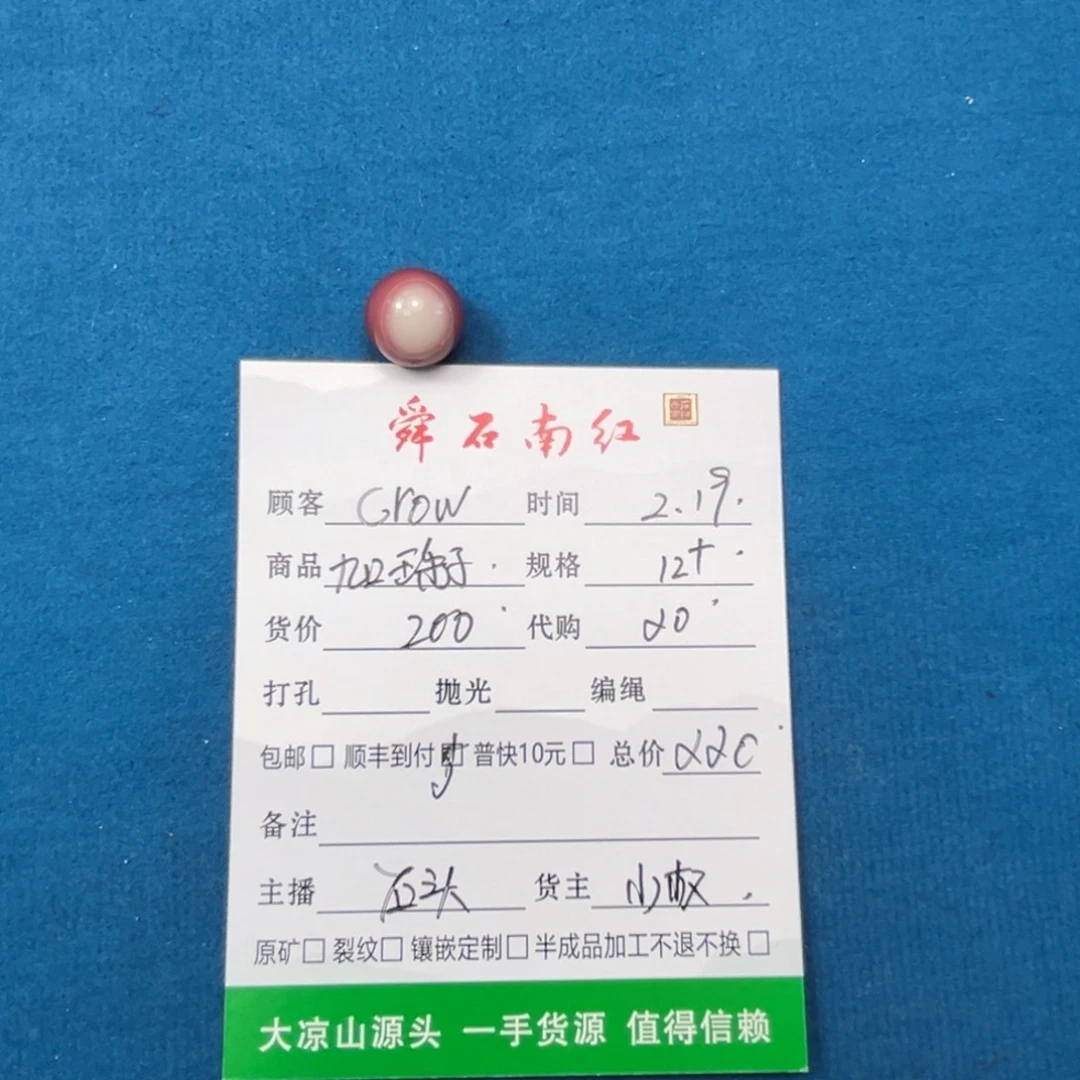 舜石南红
顾客 Grow 时间 2.19.
商品 九口珠子 规格 12+
货价 200 代购 20
打孔 抛光 编绳
包邮□ 顺丰到付□ 普快10元□ 总价 220
备注
主播 石头 货主 小
原矿□ 裂纹□ 镶嵌定制□ 半成品加工不退不换□
大凉山源头 一手货源 值得信赖